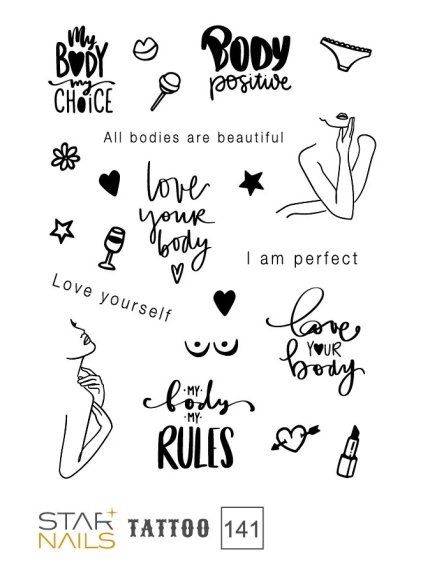 My
BODY
my
CHOICE
BODY
positive
All bodies are beautiful
love
your
body
I am perfect
Love yourself
love
YOUR
body
MY
body
MY
RULES
STAR
NAILS
TATTOO
141